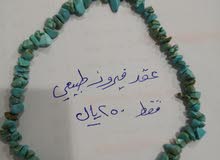 عقد فيروز طبيعي
فقط ٢٥٠ ريال